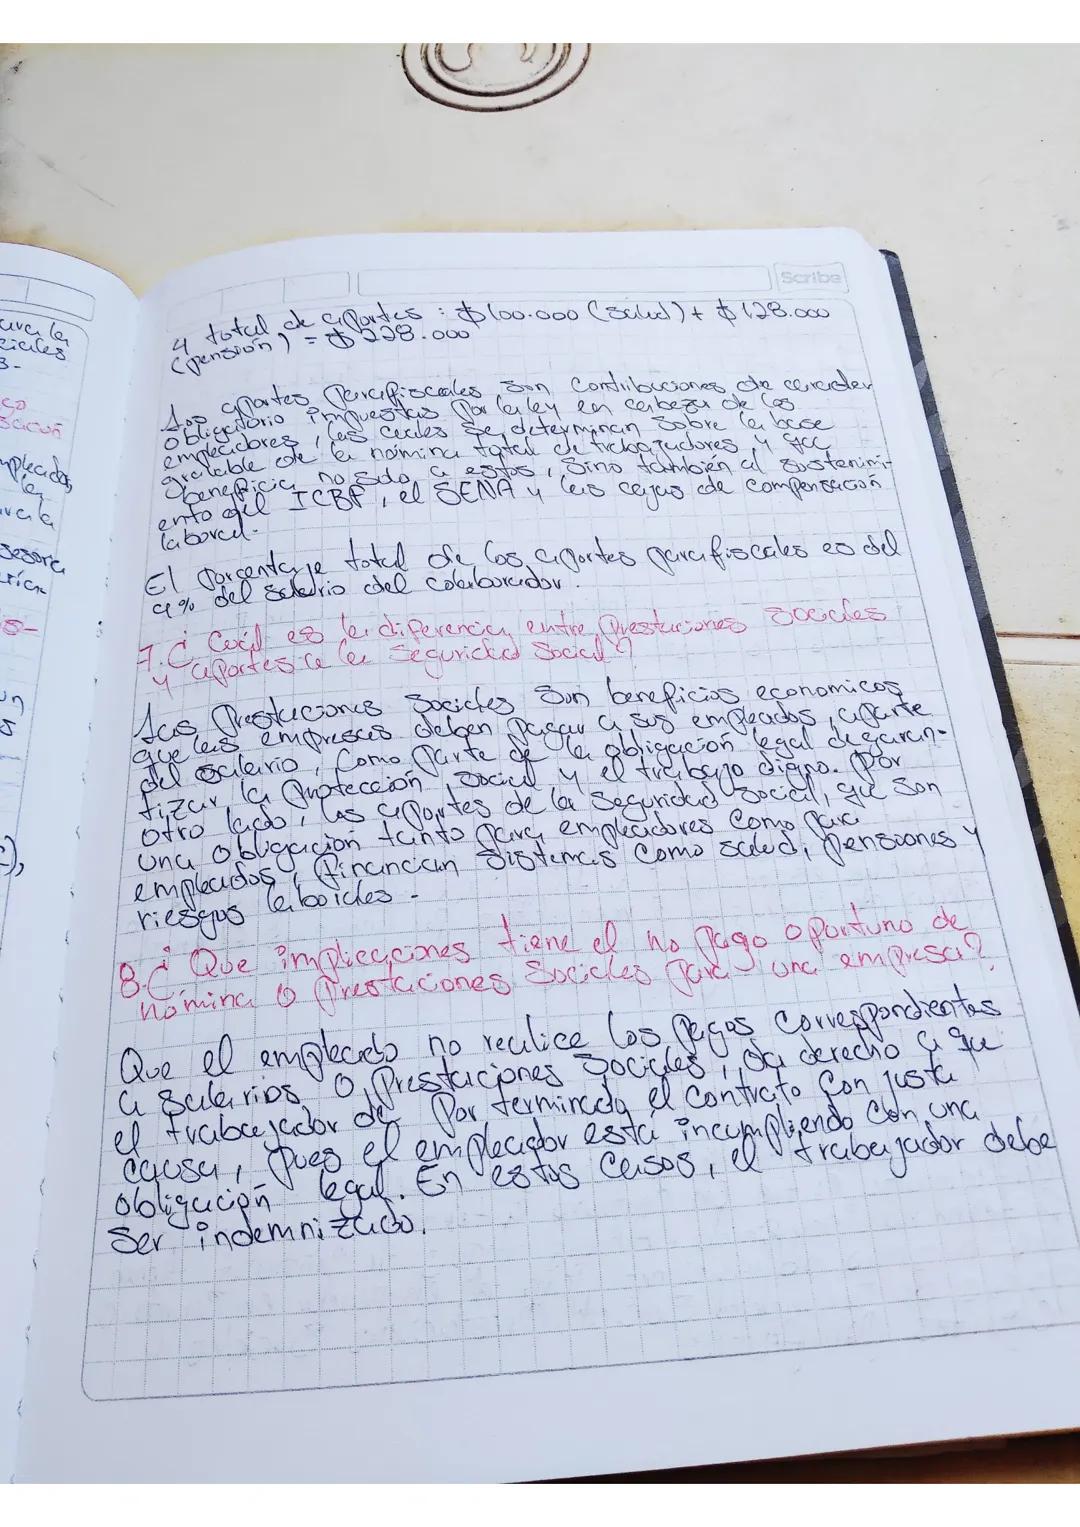 Scribe
4 total de aportes : $100.000 (salud) + $128.000
(pensión) = $228.000
Los aportes parafiscales son contribuciones de caracter
obligatorio impuestas por la ley en cabeza de los
empleadores, las cuales se determinan sobre la base
gravable de la nómina total de trabajadores y que
beneficia no solo a estos, sino también al sostenimi-
ento del ICBF, el SENA y las cajas de compensación
laboral.
El porcentaje total de los aportes parafiscales es del
9% del salario del colaborador.
7. ¿ Cuál es la diferencia entre prestaciones sociales
y aportes a la seguridad social?
Las prestaciones sociales son beneficios economicos
que las empresas deben pagar a sus empleados, aparte
del salario, como parte de la obligación legal de garan-
tizar la protección social y el trabajo digno. Por
otro lado, los aportes de la seguridad social, que son
una obligación tanto para empleadores como para
empleados, financian sistemas como salud, pensiones y
riesgos laborales.
8. ¿ Que implicaciones tiene el no pago oportuno de
nómina o prestaciones sociales para una empresa?
Que el empleado no realice los pagos correspondientes
a salarios o prestaciones sociales, da derecho a que
el trabajador de por terminado el contrato con justa
causa, pues el empleador está incumpliendo con una
obligación legal. En estos casos, el trabajador debe
ser indemnizado.